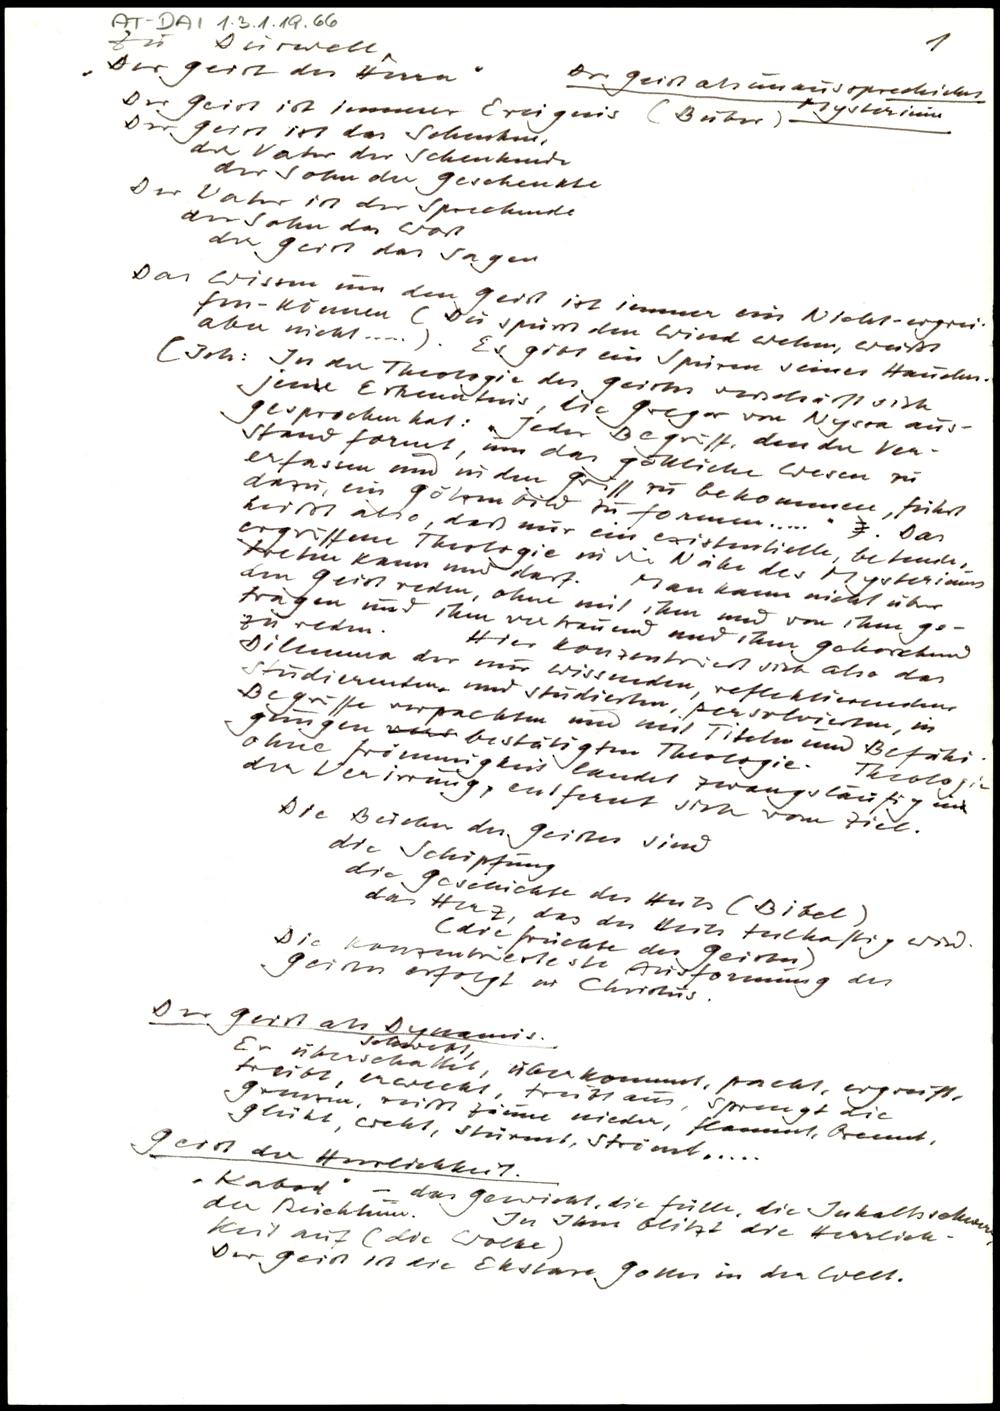 AT-DAI 1.3.1.19.66
1
Zu Durwell,
"Der Geist des Herrn"
Der Geist als unaussprechliches
Mysterium
Der Geist ist immer Ereignis (Buber)
Der Geist ist das Schenken,
der Vater der Schenkende
der Sohn der Geschenkte
Der Vater ist der Sprechende
der Sohn das Wort
der Geist das Sagen
Das Wissen um den Geist ist immer ein Nicht-ergrei-
fen-können (Du spürst den Wind wehen, weißt
aber nicht.....). Es gibt ein Spüren seines Hauches.
(Joh: In der Theologie des Geistes verschärft sich
jene Erkenntnis, die Gregor von Nyssa aus-
gesprochen hat: "Jeder Begriff, den der Ver-
stand formt, um das göttliche Wesen zu
erfassen und in den Griff zu bekommen, führt
dazu, ein Götzenbild zu formen....." Das
heißt also, daß nur ein existentielle, betende,
ergriffene Theologie in die Nähe des Mysteriums
treten kann und darf. Man kann nicht über
den Geist reden, ohne mit ihm und von ihm ge-
tragen und ihm vertrauend und ihm gehorchend
zu reden. Hier konzentriert sich also das
Dilemma der nur wissenden, reflektierenden
studierenden und studierten, persolvierten, in
Begriffe verpackten und mit Titeln und Befähi-
gungen bestätigten Theologie. Theologie
ohne Frömmigkeit landet zwangsläufig in
der Verirrung, entfernt sich vom Ziel.
Die Bücher des Geistes sind
die Schöpfung
die Geschichte des Heils (Bibel)
das Herz, das des Heils teilhaftig wird.
(die Früchte des Geistes)
Die konzentrierteste Ausformung des
Geistes erfolgt in Christus.
Der Geist als Dynamis.
schwebt,
Er überschattet, überkommt, packt, ergreift,
treibt, erweckt, treibt aus, sprengt die
Grenzen, reißt Zäune nieder, flammt, brennt,
glüht, weht, stürmt, strömt,.....
Geist der Herrlichkeit.
"Kabod" - das Gewicht, die Fülle, die Inhaltsschwere,
der Reichtum. In Ihm blitzt die Herrlich-
keit auf (die Wolke)
Der Geist ist die Ekstase Gottes in der Welt.